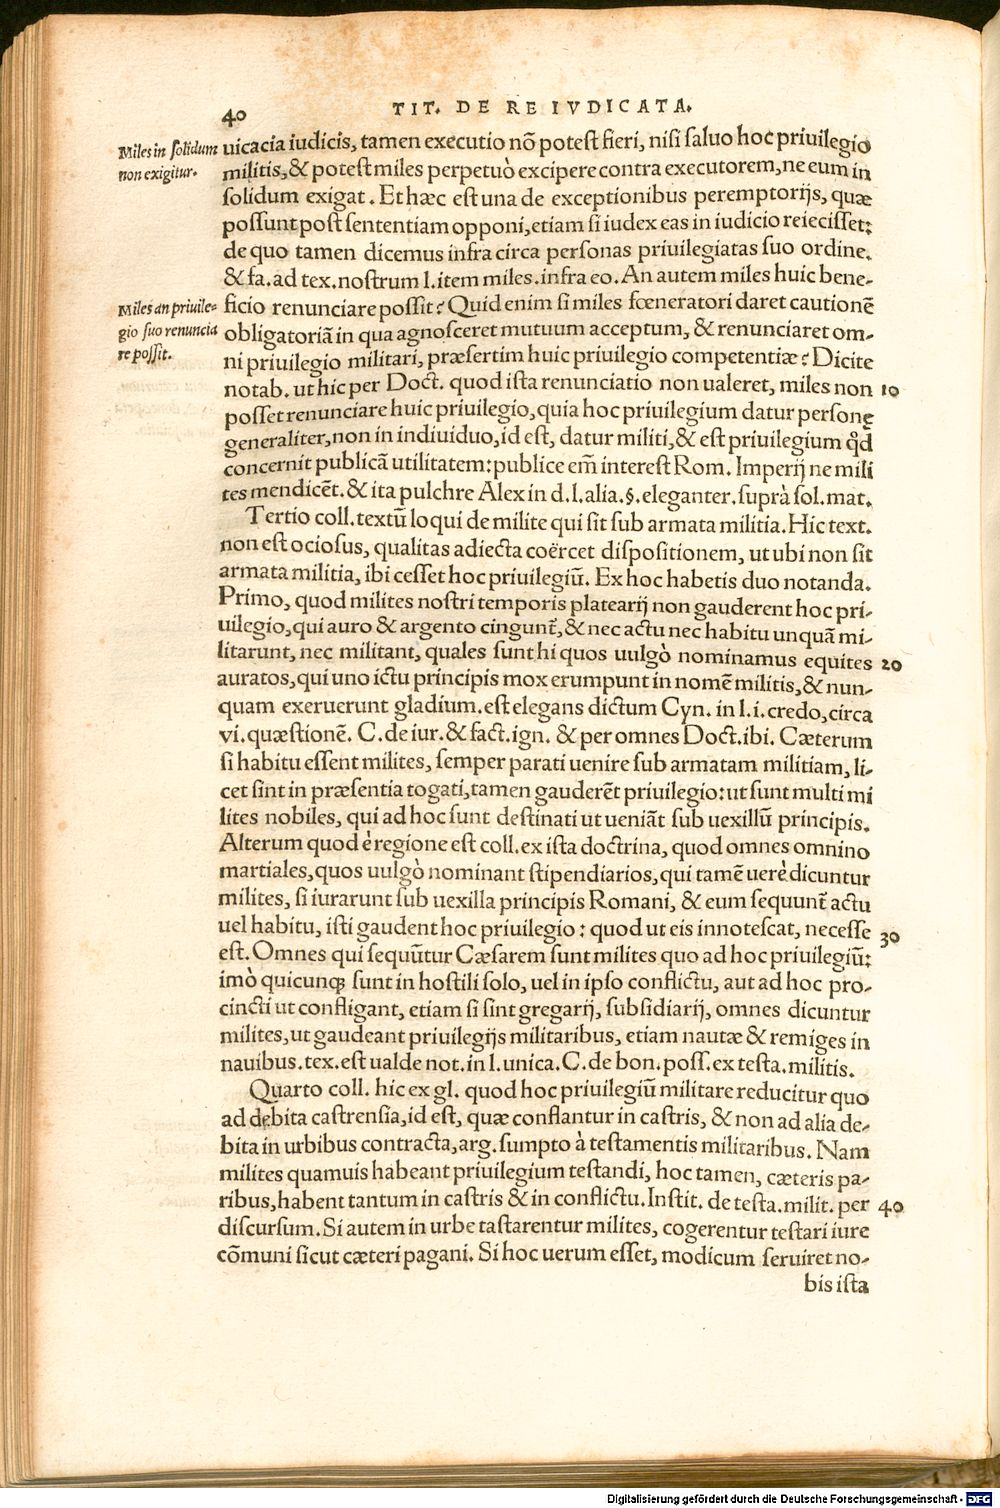 40
TIT. DE RE IVDICATA.
Miles in solidum
non exigitur.
uicacia iudicis, tamen executio nõ potest fieri, nisi saluo hoc priuilegio
militis, & potest miles perpetuò excipere contra executorem, ne eum in
solidum exigat. Et hæc est una de exceptionibus peremptorijs, quæ
possunt post sententiam opponi, etiam si iudex eas in iudicio reiecisset:
de quo tamen dicemus infra circa personas priuilegiatas suo ordine.
& fa. ad tex. nostrum l. item miles. infra eo. An autem miles huic bene-
Miles an priuile-
gio suo renuncia
re possit.
ficio renunciare possit? Quid enim si miles fœneratori daret cautionẽ
obligatoriã in qua agnosceret mutuum acceptum, & renunciaret om-
ni priuilegio militari, præsertim huic priuilegio competentiæ? Dicite
notab. ut hic per Doct. quod ista renunciatio non ualeret, miles non 10
posset renunciare huic priuilegio, quia hoc priuilegium datur personę
generaliter, non in indiuiduo, id est, datur militi, & est priuilegium qđ
concernit publicã utilitatem: publice em̃ interest Rom. Imperij ne mili
tes mendicẽt. & ita pulchre Alex in d. l. alia. §. eleganter. suprà sol. mat.
Tertio coll. textũ loqui de milite qui sit sub armata militia. Hic text.
non est ociosus, qualitas adiecta coërcet dispositionem, ut ubi non sit
armata militia, ibi cesset hoc priuilegiũ. Ex hoc habetis duo notanda.
Primo, quod milites nostri temporis platearij non gauderent hoc pri-
uilegio, qui auro & argento cingunt̃, & nec actu nec habitu unquã mi-
litarunt, nec militant, quales sunt hi quos uulgò nominamus equites 20
auratos, qui uno ictu principis mox erumpunt in nomẽ militis, & nun-
quam exeruerunt gladium. est elegans dictum Cyn. in l. i. credo, circa
vi. quæstionẽ. C. de iur. & fact. ign. & per omnes Doct. ibi. Cæterum
si habitu essent milites, semper parati uenire sub armatam militiam, li-
cet sint in præsentia togati, tamen gauderẽt priuilegio: ut sunt multi mi
lites nobiles, qui ad hoc sunt destinati ut ueniãt sub uexillũ principis.
Alterum quod è regione est coll. ex ista doctrina, quod omnes omnino
martiales, quos uulgò nominant stipendiarios, qui tamẽ uerè dicuntur
milites, si iurarunt sub uexilla principis Romani, & eum sequunt̃ actu
uel habitu, isti gaudent hoc priuilegio: quod ut eis innotescat, necesse 30
est. Omnes qui sequũtur Cæsarem sunt milites quo ad hoc priuilegiũ:
imò quicunq; sunt in hostili solo, uel in ipso conflictu, aut ad hoc pro-
cincti ut confligant, etiam si sint gregarij, subsidiarij, omnes dicuntur
milites, ut gaudeant priuilegijs militaribus, etiam nautæ & remiges in
nauibus. tex. est ualde not. in l. unica. C. de bon. poss. ex testa. militis.
Quarto coll. hic ex gl. quod hoc priuilegiũ militare reducitur quo
ad debita castrensia, id est, quæ conflantur in castris, & non ad alia de-
bita in urbibus contracta, arg. sumpto à testamentis militaribus. Nam
milites quamuis habeant priuilegium testandi, hoc tamen, cæteris pa-
ribus, habent tantum in castris & in conflictu. Instit. de testa. milit. per 40
discursum. Si autem in urbe tastarentur milites, cogerentur testari iure
cõmuni sicut cæteri pagani. Si hoc uerum esset, modicum seruiret no-
bis ista
Digitalisierung gefördert durch die Deutsche Forschungsgemeinschaft - DFG